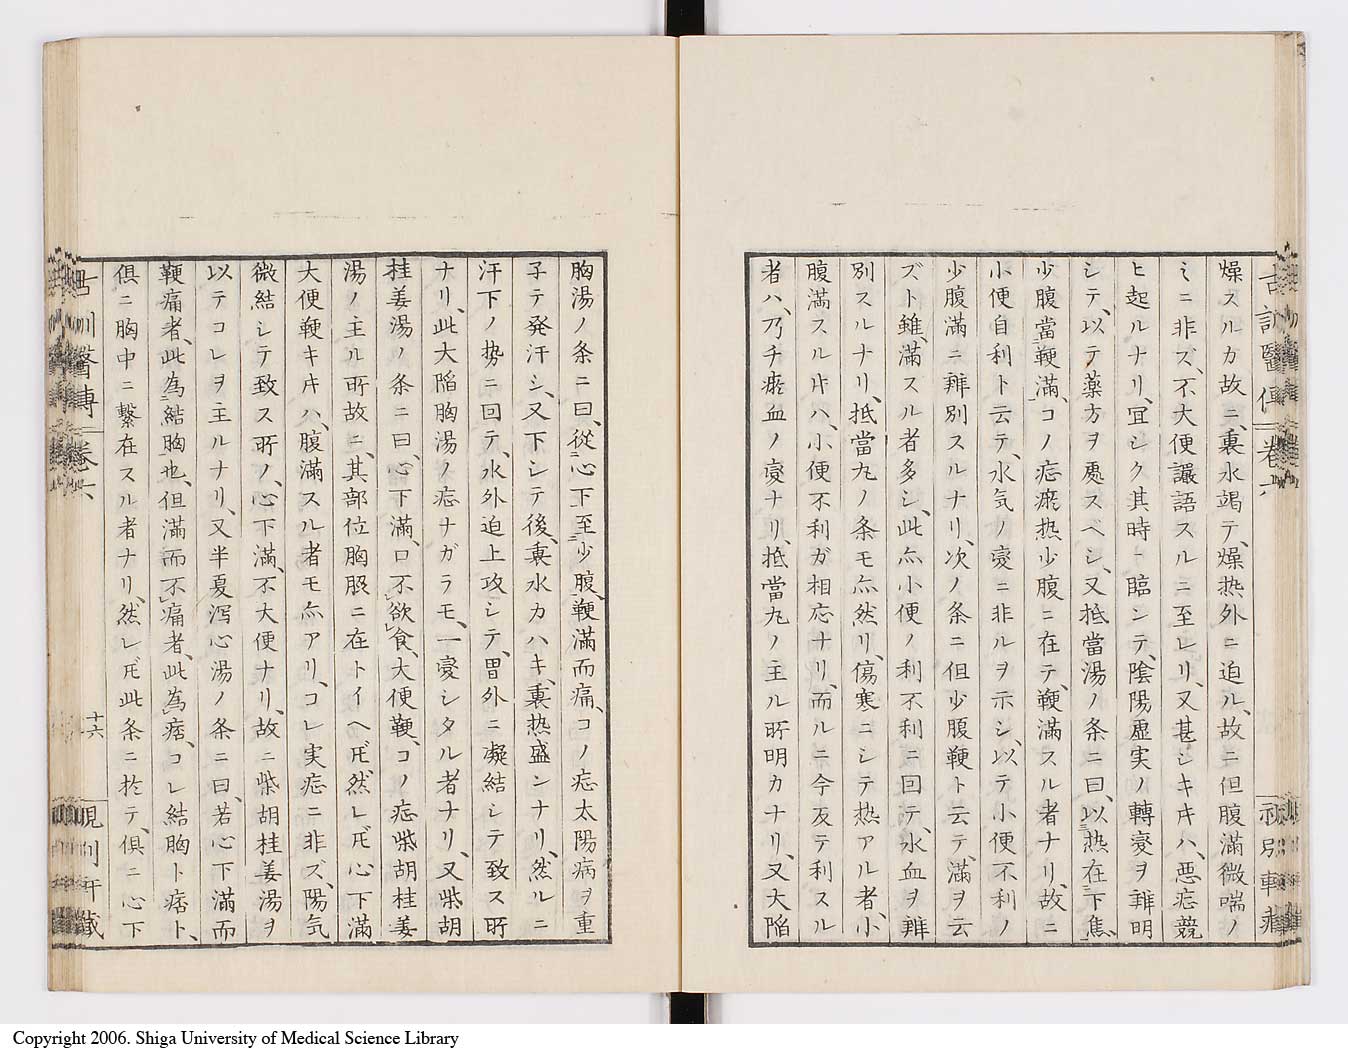 燥スルカ故ニ、裏水竭テ、燥热外ニ迫ル、故ニ但腹滿微喘ノ
ミニ非ズ、不大便讝語スルニ至レリ、又甚シキ𪜈ハ、悪症競
ヒ起ルナリ、冝シク其時ニ臨ンテ、陰陽虚実ノ轉変ヲ辨明
シテ、以テ薬方ヲ処スベシ、又抵當湯ノ条ニ曰、以热在下焦、
少腹當鞕滿、コノ症瘀热少腹ニ在テ、鞕滿スル者ナリ、故ニ
小便自利ト云テ、水気ノ変ニ非ルヲ示シ、以テ小便不利ノ
少腹滿ニ辨別スルナリ、次ノ条ニ但少腹鞕ト云テ、滿ヲ云
ズト雖、滿スル者多シ、此亦小便ノ利不利ニ回テ、水血ヲ辨
別スルナリ、抵當丸ノ条モ亦然リ、傷寒ニシテ热アル者、小
腹滿スル𪜈ハ、小便不利ガ相応ナリ、而ルニ今反テ利スル
者ハ、乃チ瘀血ノ変ナリ、抵當丸ノ主ル所明カナリ、又大陥
胸湯ノ条ニ曰、從心下至少腹、鞕滿而痛、コノ症太陽病ヲ重
子テ発汗シ、又下シテ後、裏水カハキ、裏热盛ンナリ、然ルニ
汗下ノ势ニ回テ、水外迫上攻シテ、胃外ニ凝結シテ致ス所
ナリ、此大陥胸湯ノ症ナガラモ、一変シタル者ナリ、又柴胡
桂姜湯ノ条ニ曰、心下滿、口不欲食、大便鞕、コノ症柴胡桂姜
湯ノ主ル所故ニ、其部位胸脇ニ在トイヘ𪜈然レ𪜈心下滿
大便鞕キ𪜈ハ、腹滿スル者モ亦アリ、コレ実症ニ非ズ、陽気
微結シテ致ス所ノ、心下滿、不大便ナリ、故ニ柴胡桂姜湯ヲ
以テコレヲ主ルナリ、又半夏瀉心湯ノ条ニ曰、若心下滿而
鞕痛者、此為結胸也、但滿而不痛者、此為痞、コレ結胸ト痞ト、
俱ニ胸中ニ繋在スル者ナリ、然レ𪜈此条ニ於テ、俱ニ心下
古訓醫傳 卷六
十六
Copyright 2006. Shiga University of Medical Science Library